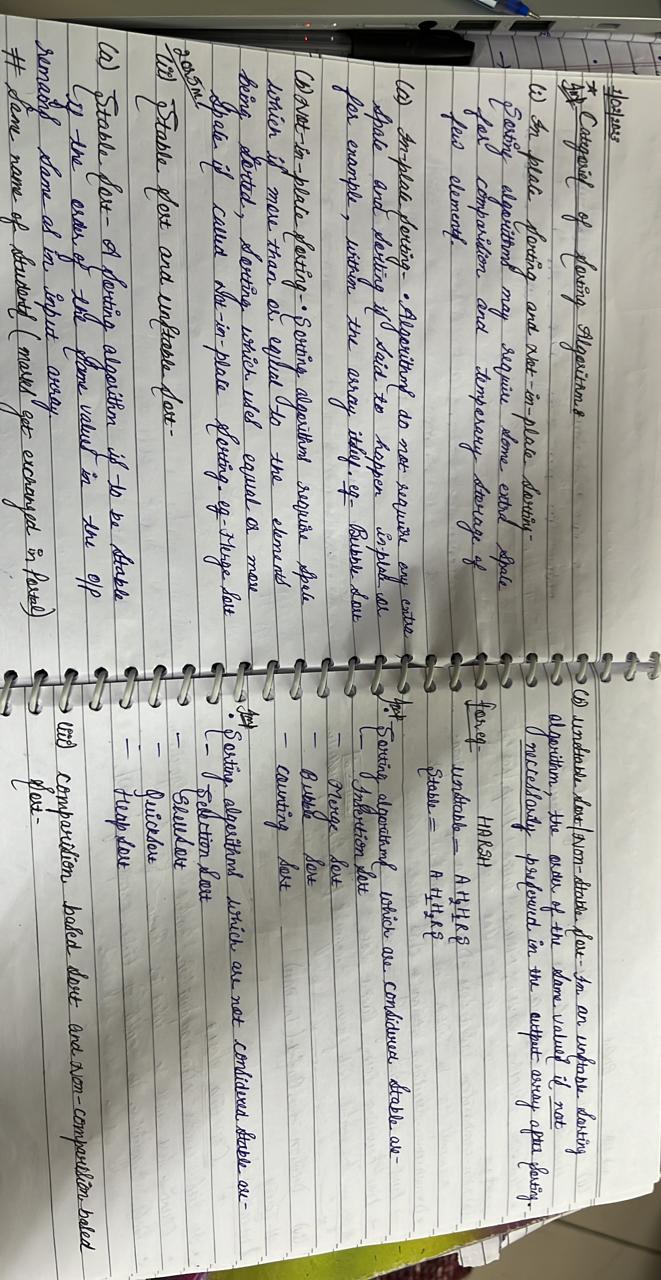 * Categories of Sorting Algorithms
(i) In place Sorting and Not-in-place Sorting-
Sorting algorithms may require some extra space
for comparision and temporary storage of
few elements.
(a) In-place Sorting - • Algorithms do not require any extra
space and sorting is said to happen in-place or
for example, within the array itself. eg- Bubble Sort
(b) Not-in-place Sorting - • Sorting algorithms require space
which is more than or equal to the elements
being sorted, sorting which uses equal or more
space is called Not-in-place sorting. eg- Merge Sort
(ii) Stable Sort and Unstable Sort-
(a) Stable Sort - A sorting algorithm is to be stable
if the order of the same values in the o/p
remains same as in input array.
# Same name of students (marks get exchanged in Portal)
(b) Unstable Sort/Non-stable Sort - In an unstable sorting
algorithm, the order of the same values is not
neccessarily preferved in the output array after sorting.
for eg- HARSH
Unstable = A H₂ H₁ R S
Stable = A H₁ H₂ R S
Imp • Sorting algorithms which are considered stable are-
- Insertion Sort
- Merge Sort
- Bubble Sort
- Counting Sort
Imp • Sorting algorithms which are not considered stable are-
- Selection Sort
- ShellSort
- QuickSort
- Heap Sort
(iii) Comparision based Sort and Non-comparision based
Sort-